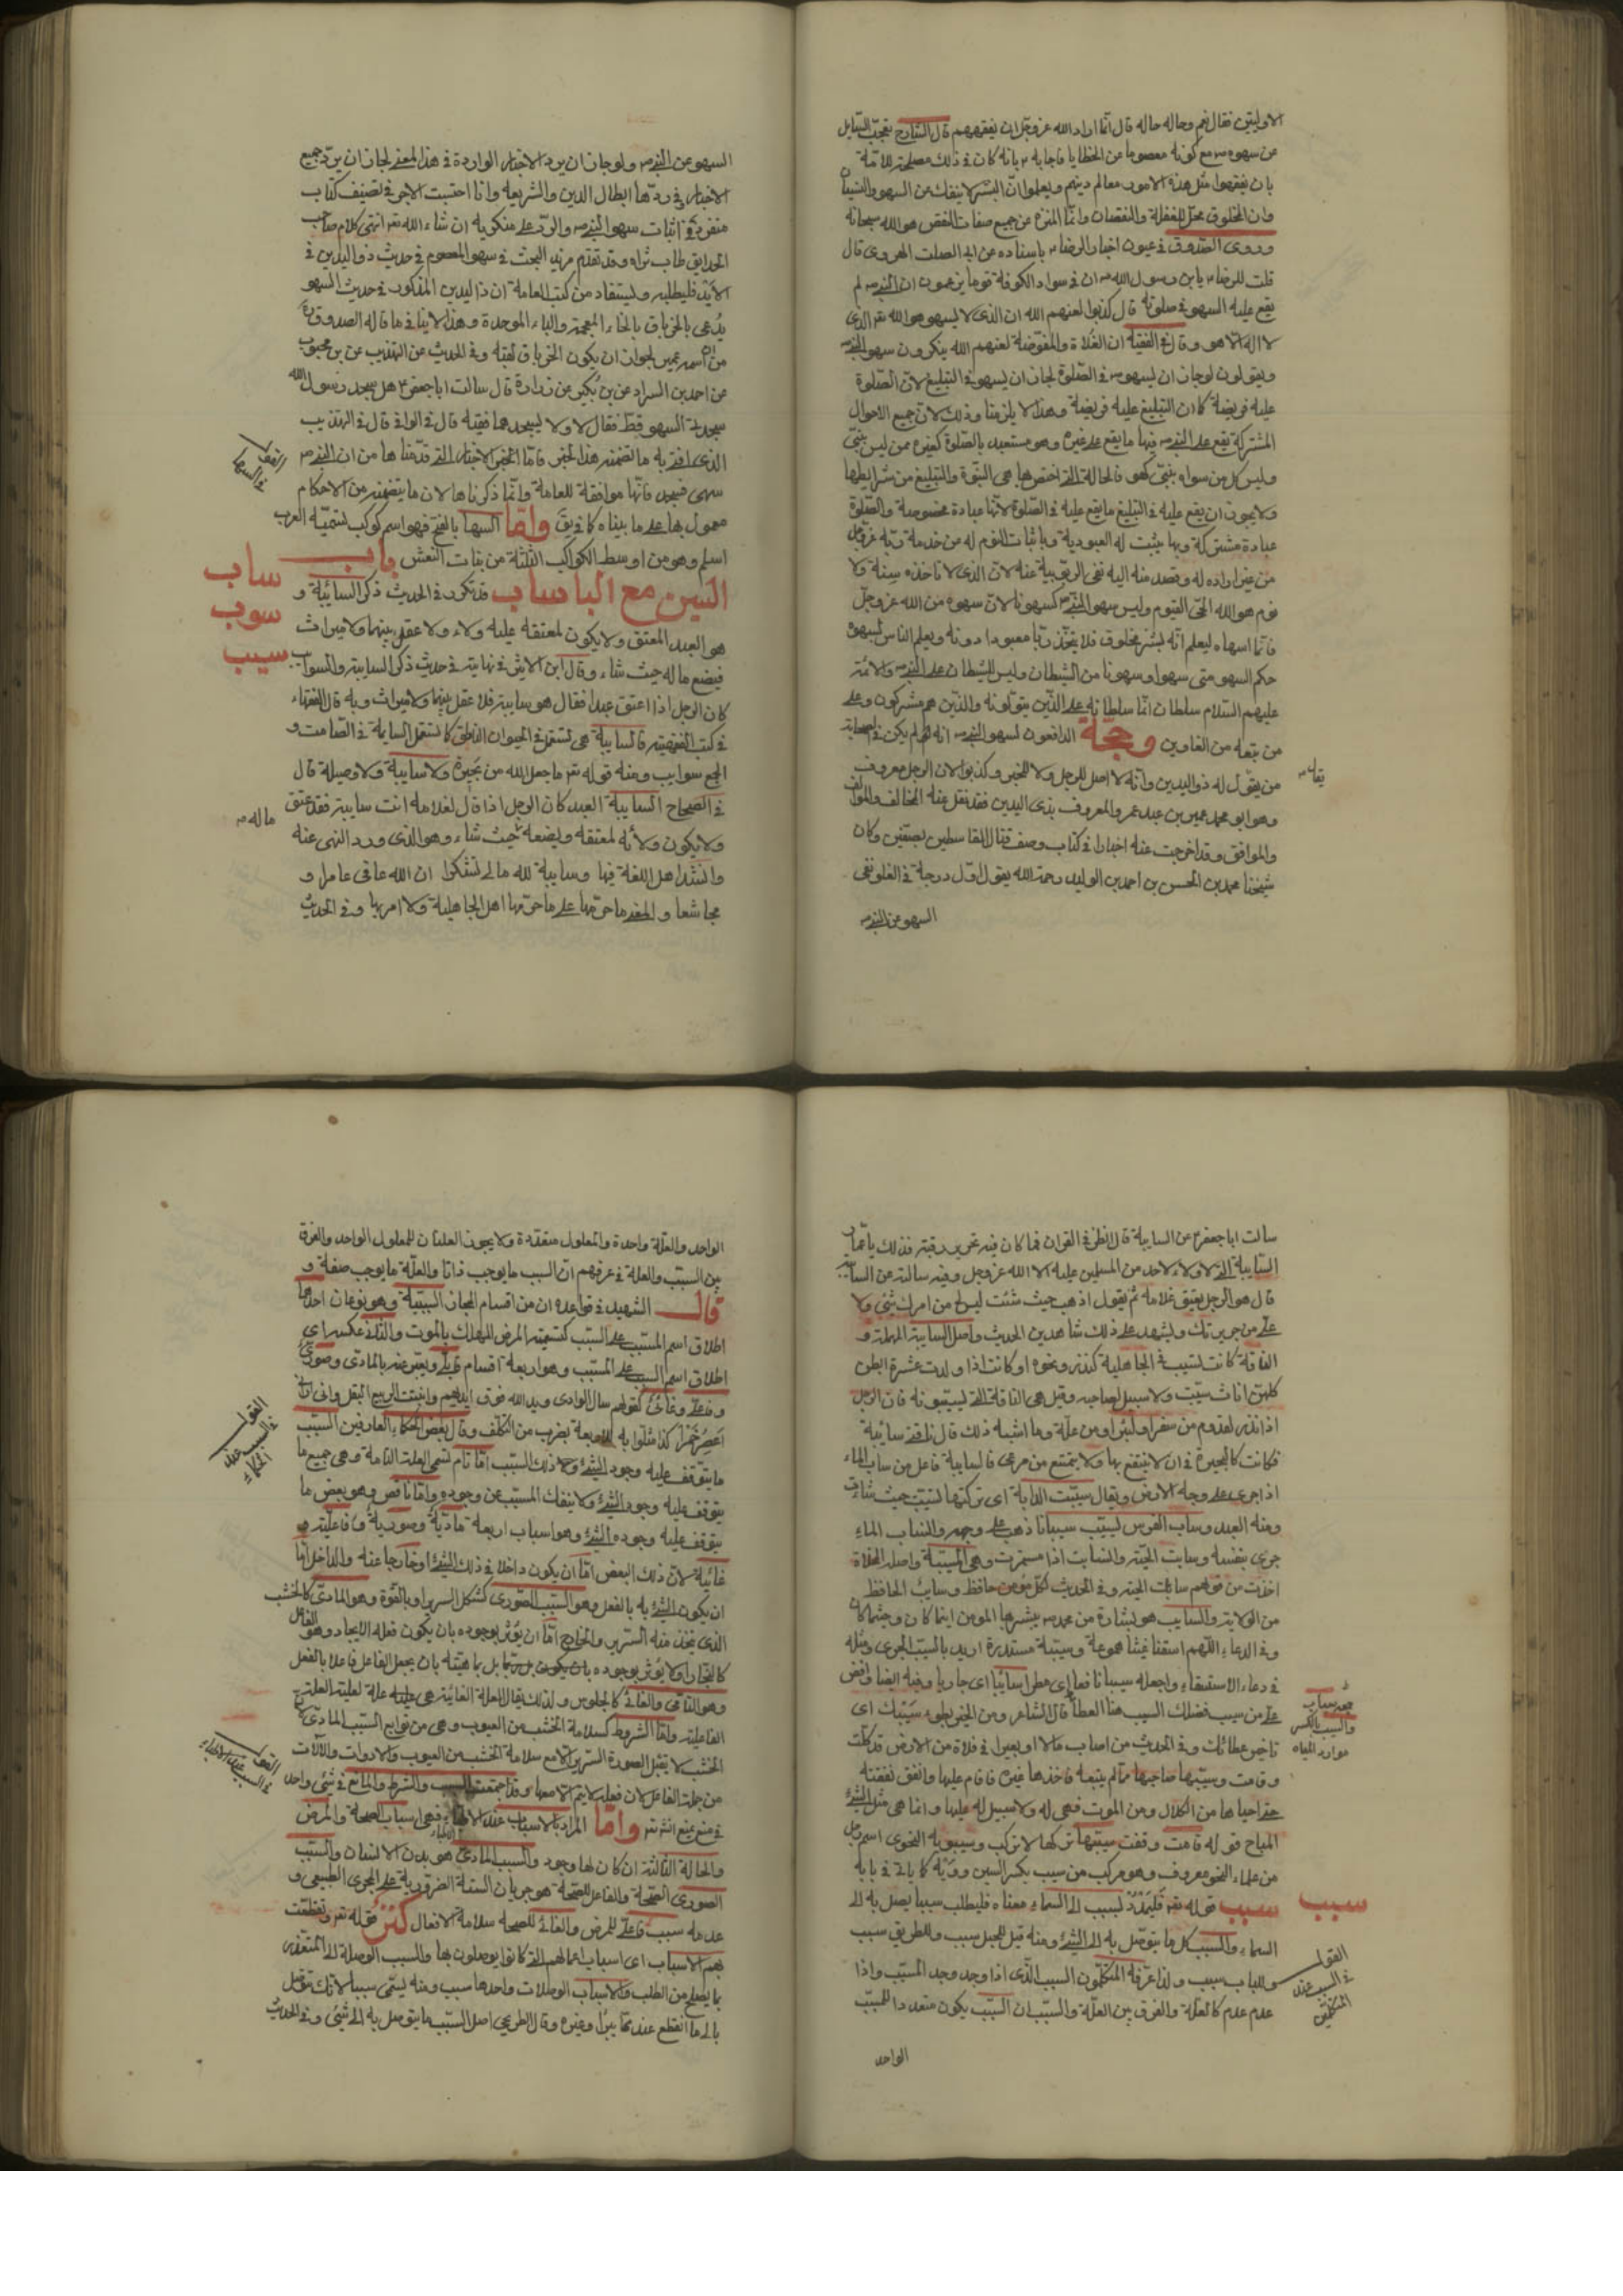 الاوليتين فقال نعم وحاله حاله قال انما اراد الله عز وجل ان يفقههم قال الشارح تعجب السايل
من سهوه ص مع كونه معصوما من الخطايا فاجابه ع بانه كان في ذلك مصلحة للامة
بان يفقهوا مثل هذه الامور معالم دينهم ويعلموا ان البشر لا ينفك عن السهو والنسيان
وان المخلوق محل للغفلة والنقصان وانما المنزه عن جميع صفات النقص هو الله سبحانه
وروى الصدوق في عيون اخبار الرضا ع باسناده عن ابي الصلت الهروي قال
قلت للرضا ع يابن رسول الله ص ان في سواد الكوفة قوما يزعمون ان النبي ص لم
يقع عليه السهو في صلوته قال كذبوا لعنهم الله ان الذي لا يسهو هو الله تعه الذي
لا اله الا هو وقال في الفقيه ان الغلاة والمفوضة لعنهم الله ينكرون سهو النبي ص
ويقولون لو جاز ان يسهو ص في الصلوة لجاز ان يسهو في التبليغ لان الصلوة
عليه فريضة كما ان التبليغ عليه فريضة وهذا لا يلزمنا وذلك لان جميع الاحوال
المشتركة يقع على النبي ص فيها ما يقع على غيره وهو متعبد بالصلوة كغيره ممن ليس بنبي
وليس كل من سواه بنبي كهو فالحالة التي اختص بها هي النبوة والتبليغ من شرايطها
ولا يجوز ان يقع عليه في التبليغ ما يقع عليه في الصلوة لانها عبادة مخصوصة والصلوة
عبادة مشتركة وبها يثبت له العبودية وباثبات النوم له عن خدمة ربه عز وجل
من غير ارادة له وقصد منه اليه نفي الربوبية عنه لان الذي لا تاخذه سنة ولا
نوم هو الله الحي القيوم وليس سهو النبي ص كسهونا لان سهوه من الله عز وجل
فانما اسهاه ليعلم انه بشر مخلوق فلا يتخذ ربا معبودا دونه وليعلم الناس بسهوه
حكم السهو متى سهوا وسهونا من الشيطان وليس للشيطان على النبي ص والائمة
عليهم السلام سلطان انما سلطانه على الذين يتولونه والذين هم مشركون وعلى
من تبعه من الغاوين وحجة الدافعون لسهو النبي ص انه لم يكن في الصحابة
من يقول له ذو اليدين وانه لا اصل للرجل ولا للخبر وكذبوا لان الرجل معروف
يقال
وهو ابو محمد عمير بن عبد عمرو المعروف بذي اليدين فقد نقل عنه المخالف والمؤالف
والموافق وقد اخرجت عنه اخبارا في كتاب وصف قتال القاسطين بصفين وكان
شيخنا محمد بن الحسن بن احمد بن الوليد رحمة الله يقول اول درجة في الغلو نفي
السهو عن النبي ص
السهو عن النبي ص ولو جاز ان يرد الاخبار الواردة في هذا المعنى لجاز ان يرد جميع
الاخبار وفي ردها ابطال الدين والشريعة وانا احتسبت الاجر في تصنيف كتاب
منفرد في اثبات سهو النبي ص والرد على منكريه ان شاء الله تعه انتهى كلام صاحب
الحدايق طاب ثراه وقد تقدم مزيد البحث في سهو المعصوم في حديث ذو اليدين في
فليطلبه وليستفاد من كتب العامة ان ذا اليدين المذكور في حديث السهو
يدعى بالخرباق بالخاء المعجمة والباء الموحدة وهذا لا ينافي ما قاله الصدوق ره
من ان اسمه عمير لجواز ان يكون الخرباق لقبه وفي الحديث عن التهذيب عن بن محبوب
عن احمد بن السراد عن بن بكير عن زرارة قال سالت ابا جعفر ع هل سجد رسول الله
سجدتي السهو قط فقال لا ولا يسجدهما فقيه قال في الوافي قال في التهذيب
القول في السها
الذي افتي به ما تضمنه هذا الخبر فاما الاخبار التي قدمناها من ان النبي ص
سهى فسجد فانها موافقة للعامة وانما ذكرناها لان ما يتضمنه من الاحكام
معمول بها على ما بيناه واما السها بالفتح فهو اسم كوكب لتسميه العرب
اسلم وهو من اوسط الكواكب الثلثة من بنات النعش باب
السين مع البا ساب قد تكرر في الحديث ذكر السائبة و
ساب
سوب
سيب
هو العبد المعتق ولا يكون لمعتقه عليه ولاء ولا عقل بينهما ولا ميراث
فيضع ماله حيث شاء وقال ابن الاثير في نهايته في حديث ذكر السايبة والسوايب
كان الرجل اذا اعتق عبدا فقال هو سايبة فلا عقل بينهما ولا ميراث وبه قال الفقهاء
في كتب الفقهية فالسايبة هي تستعمل في الحيوان الناطق كما تستعمل السايمة في الصامت و
الجمع سوايب ومنه قوله تعه ما جعل الله من بحيرة ولا سايبة ولا وصيلة قال
في الصحاح السايبة العبد كان الرجل اذا قال لغلامه انت سايبة فقد عتق
ماله ص
ولا يكون ولائه لمعتقه ويضعه حيث شاء وهو الذي ورد النهي عنه
وانشد اهل اللغة فيها وسايبة لله مالي تشكرا ان الله عافى عامرا و
مجاشعا والمعنى ما حرمها على ما حرمها اهل الجاهلية ولا امر بها وفي الحديث
سالت ابا جعفر ع عن السايبة قال انظر في القران فما كان فيه تحرير رقبة فذلك يا عمار
السايبة التي لا ولاء لاحد من المسلمين عليه الا الله عز وجل وفيه سالته عن السايبة
قال هو الرجل يعتق غلامه ثم يقول اذهب حيث شئت ليس لي من امرك شئ ولا
علي من جريرتك ويشهد على ذلك شاهدين الحديث واصل السايبة المهملة و
الناقة كانت تسيب في الجاهلية لنذر ونحوه او كانت اذا ولدت عشرة ابطن
كلهن اناث سيبت ولا سبيل لصاحبه وقيل هي الناقة التي تسيبونه فان الرجل
اذا نذر لقدوم من سفر او لبرء من علة وما اشبه ذلك قال ناقتي سائبة
فكانت كالبحيرة في ان لا ينتفع بها ولا يمتنع من مرعى فالسايبة فاعل من ساب الماء
اذا جرى على وجه الارض ويقال سيبت الدابة اي تركتها لتسيب حيث شاءت
ومنه العبد وساب الفرس يسيب سيبانا ذهب على وجهه وانساب الماء
جرى بنفسه وسابت الحية وانسابت اذا مستمرت وهي المسيبة واصله
اخذت من قولهم سابت الحية وفي الحديث لكل مؤمن حافظ وسايب الحافظ
من الولاية والسايب هو بشارة من محمد ص يبشر بها المومن اينما كان وحيثما كان
وفي الدعاء اللهم اسقنا غيثا وسيبة مستدرة اريد بالسيب الجرى ومثله
في دعاء الاستسقاء واجعله سيبا نافعا اي مطرا سايبا اي جاريا وفيه ايضا وافض
علي من سيب فضلك السيب هنا العطا قال الشاعر ومن الخير بطوء سيبك اي
والسيب بالكسر موارد المياه
تاخر عطائك وفي الحديث من اصاب مالا او بعيرا في فلاة من الارض قد كلت
وقامت وسيبها صاحبها مما لم يتبعه فاخذها غيره فاقام عليها وانفق نفقته
حتى احياها من الكلال ومن الموت فهي له ولا سبيل له عليها وانما هي مثل الشئ
المباح قوله قامت وقفت سيبها تركها لا تركب وسيبويه النحوي اسم رجل
من علماء النحو معروف وهو مركب من سيب بكسر السين وويه كما ياتي في بابه
سبب قوله تعه فليمدد بسبب الى السماء معناه فليطلب سببا يصل به الى
سبب
السماء والسبب كل ما يتوصل به الى الشئ ومنه قيل للحبل سبب وللطريق سبب
وللباب سبب ولذا عرفه المتكلمون السبب الذي اذا وجد وجد المسبب واذا
القول في السبب عند المتكلمين
عدم عدم كالعلة والفرق بين العلة والسبب ان السبب يكون متعددا للمسبب
الواحد
الواحد والعلة واحدة والمعلول متعددة ولا يجوز العلتان للمعلول الواحد والفرق
بين السبب والعلة في عرفهم ان السبب ما يوجب ذاتا والعلة ما يوجب صفة و
قال الشهيد في قواعده ان من اقسام المجاز السببية وهو نوعان احدهما
اطلاق اسم المسبب على السبب كتسمية المرض المهلك بالموت والثاني عكسه اي
اطلاق اسم السبب على المسبب وهو اربعة اقسام قابلي ويعبر عنه بالمادي وصوري
وفاعلي وغائي كقولهم سال الوادي ويد الله فوق ايديهم وانبت الربيع البقل واني اراني
القول في السبب عند الحكماء
اعصر خمرا كذا مثلوا به للاربعة بضرب من التكلف وقال بعض الحكماء العارفين السبب
ما يتوقف عليه وجود الشئ وح ذلك السبب اما تام تسمى العلة التامة وهي جميع ما
يتوقف عليه وجود الشئ ولا ينفك المسبب عن وجوده واما ناقص وهو بعض ما
يتوقف عليه وجوده الشئ وهو اسباب اربعة مادية وصورية وفاعلية و
غائية لان ذلك البعض اما ان يكون داخلا في ذلك الشئ او خارجا عنه والداخل اما
ان يكون الشئ به بالفعل وهو السبب الصوري كشكل السرير او بالقوة وهو المادي كالخشب
الذي يتخذ منه السرير والخارج اما ان يؤثر بوجوده بان يكون فعله الايجاد وهو الفاعل
كالنجار او لا يؤثر بوجوده بل بماهيته بان يجعل الفاعل فاعلا بالفعل
وهو الغائي كالجلوس ولذلك يقال للعلة الغائية هي علة لعلية العلة
الفاعلية واما الشروط كسلامة الخشب من العيوب وهي من توابع السبب المادي
القول في السبب عند الاطباء
الخشب لا يقبل الصورة السريرية الا مع سلامة الخشب من العيوب والادوات والآلات
من جملة الفاعل لان فعله لا يتم الا معها وقد اجتمعت السبب والشرط والمانع في شئ واحد
واما المراد بالاسباب عند الاطباء فهي اسباب الصحة والمرض
والحالة الثالثة ان كان لها وجود والسبب المادي هو بدن الانسان والسبب
الصوري الصحة والفاعل للصحة هو جريان الستة الضرورية على المجرى الطبيعي و
عدمه سبب فاعلي للمرض والغائي للصحة سلامة الافعال كنز قوله تعه وتقطعت
بهم الاسباب اي اسباب اعمالهم التي كانوا يوصلون بها والسبب الوصلة الى المتعذر
بما يصلح من الطلب والاسباب الوصلات واحدها سبب ومنه يسمى سببا لانك تتوصل
به الى ما انقطع عنك وغيره وقال الطريحي اصل السبب ما يتوصل به الى شئ وفي الحديث